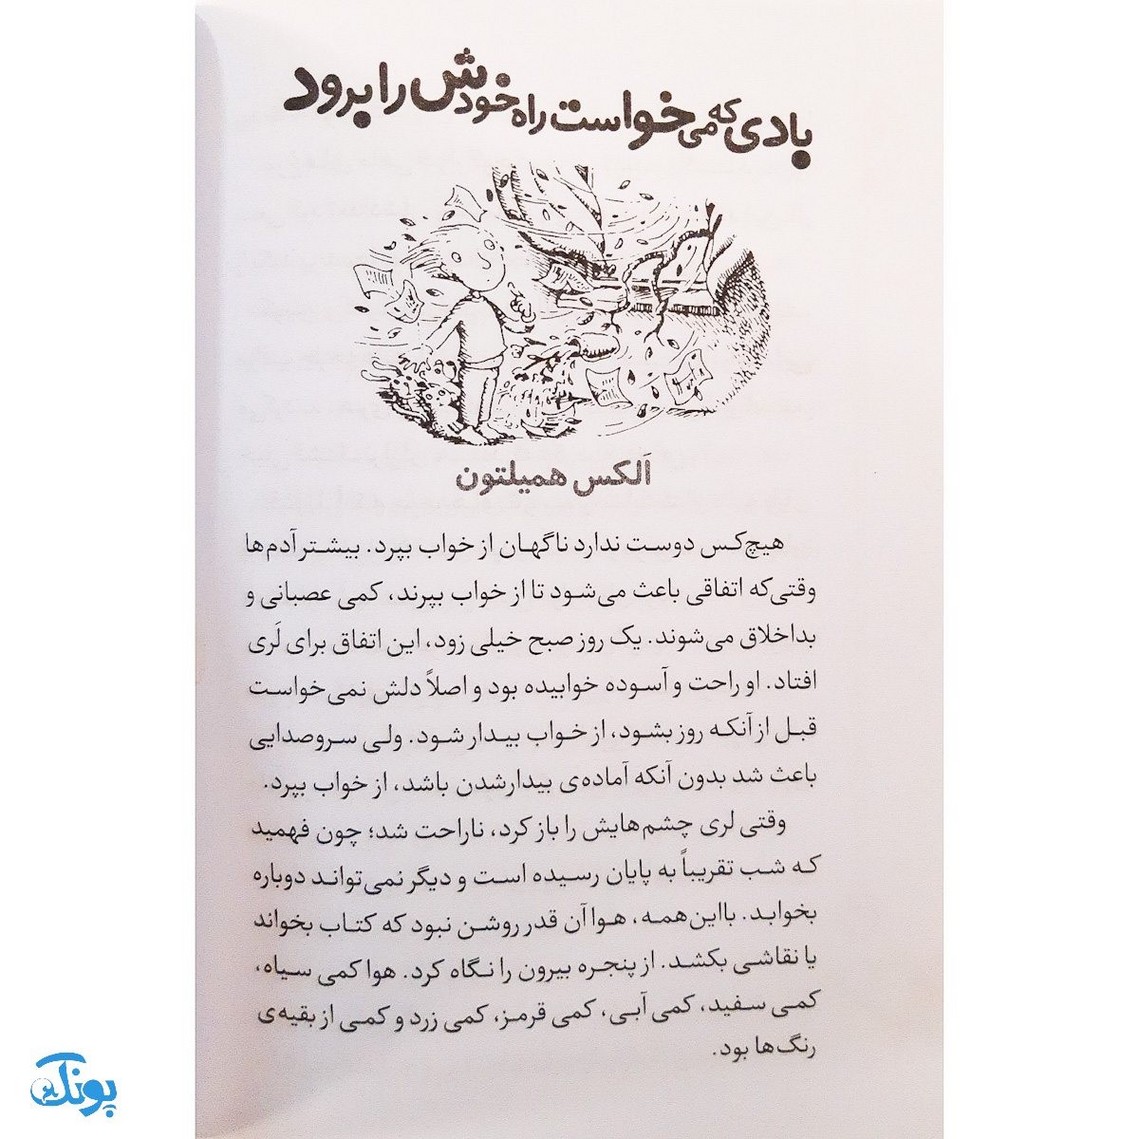 بادی که می‌خواست راه خودش را برود
اَلکس همیلتون
هیچ‌کس دوست ندارد ناگهان از خواب بپرد. بیشتر آدم‌ها
وقتی‌که اتفاقی باعث می‌شود تا از خواب بپرند، کمی عصبانی و
بداخلاق می‌شوند. یک روز صبح خیلی زود، این اتفاق برای لَری
افتاد. او راحت و آسوده خوابیده بود و اصلاً دلش نمی‌خواست
قبل از آنکه روز بشود، از خواب بیدار شود. ولی سروصدایی
باعث شد بدون آنکه آماده‌ی بیدارشدن باشد، از خواب بپرد.
وقتی لری چشم‌هایش را باز کرد، ناراحت شد؛ چون فهمید
که شب تقریباً به پایان رسیده است و دیگر نمی‌تواند دوباره
بخوابد. بااین‌همه، هوا آن قدر روشن نبود که کتاب بخواند
یا نقاشی بکشد. از پنجره بیرون را نگاه کرد. هوا کمی سیاه،
کمی سفید، کمی آبی، کمی قرمز، کمی زرد و کمی از بقیه‌ی
رنگ‌ها بود.
پونک